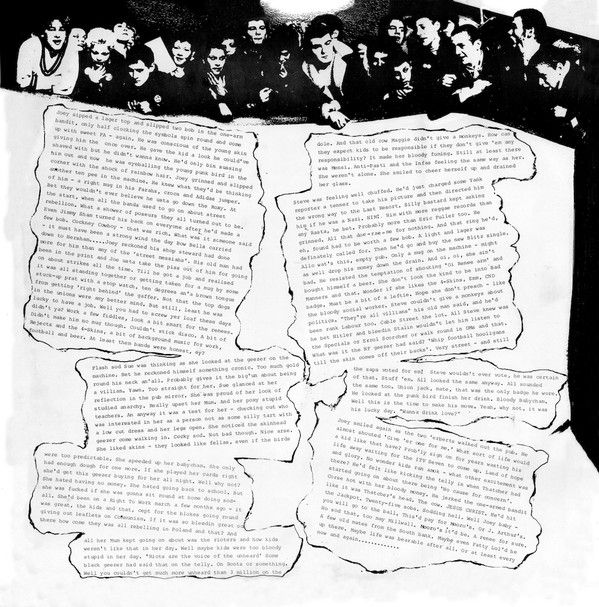 Joey sipped a lager top and slipped two bob in the one-arm
bandit, only half clocking the symbols spin round and come
up with sweet FA - again. He was conscious of the young skin
giving him the once over. He gave the kid a look he could've
shaved with but he didn't wanna know. He'd only bin sussing
him out and now he was eyeballing the young punk bird in the
corner with the shock of rainbow hair. Joey grinned and slipped
another ten pee in the machine. He knew what they'd be thinking
of him - a right mug in his Farahs, Crocs and Adidas jumper.
Bet they wouldn't ever believe he usta go down the Roxy. At
the start, when all the bands used to go on about street
rebellion. What a shower of poseurs they all turned out to be.
Even Jimmy Sham turned his back on everyone after he'd made a
few bob. Cockney Cowboy - that was rich. What was it someone said
- it must have been a strong wind the day Bow Bells carried
down to Horsham.....Joey reckoned his shop steward had done
more for him than any of the 'street messiahs'. His old man had
been in the print and Joe usta take the piss out of him for going
on about strikes all the time. Till he got a job and realised
it was all standing together or getting taken for a mug by some
stuck-up prat with a stop watch, ten degrees an' a brown tongue
from getting 'right behind' the gaffer. Not that the top dogs
in the unions were any better mind. But still, least he was
lucky to have a job. Well you had to screw yer loaf these days
didn't ya? Work a few fiddles, look a bit smart for the reheat,
Didn't make him no mug though. Couldn't stick disco. A bit of
Rejects and the 4-Skins, a bit of background music for wimmin,
football and beer. At least them bands were honest, ey?
Flash sod Sue was thinking as she looked at the geezer on the
machine. Bet he reckoned himself something cronic. Too much gold
round his neck an'all. Probably gives it the big'un about being
a villian. Yawn. Too straight for her. Sue glanced at her
reflection in the pub mirror. She was proud of her look of
studied anarchy. Really upset her Mum. And her pony stupid
teachers. An anyway it was a test for her - checking out who
was interested in her as a person not as some silly tart with
a low cut dress and her legs open. She noticed the skinhead
geezer come walking in. Corky sod. Not bad though. Nice arse.
She liked skins - they looked like felins, even if the birds
were too predictable. She speeded up her babycham. She only
had enough dough for one more. If she played her cards right
she'd get this geezer buying for her all night. Well why not?
She hated having no money. She hated going back to school, but
she was fucked if she was gonna sit round at home doing sod-
all. She'd been on a Right To Work march a few months ago - it
was great, the kids and that, cept for the hickey going round
giving out leaflets on Communism. If it was so bleedin great out
there how come they was all rebelling in Poland and that? And
all her Mum kept going on about was the rioters and how kids
weren't like that in her day. Well maybe kids were too bloody
stupid in her day. 'Riots are the voice of the unheard' Some
black geezer had said that on the telly. On Roots or something.
Well you couldn't get much more unheard than 3 million on the
dole. And that old cow Maggie didn't give a monkeys. How can
they expect kids to be responsible if they don't give 'em any
responsibility? It made her bloody fuming. Still at least there
was Mensi. Anti-Pasti and the Infas feeling the same way as her.
She weren't alone. She smiled to cheer herself up and drained
her glass.
Steve was feeling well chuffed. He'd just charged some Yank
reporter a tenner to take his picture and then directed him
the wrong way to the Last Resort. Silly bastard kept asking
him if he was a Nazi. HIM! Him with more reggae records than
any Rasta, he bet. Probably more than Eric Fuller too. He
grinned. All that doe-rae-me for nothing. And that ring he'd,
eh, found had to be worth a few bob. A light and lager was
definately called for. Then he'd go and buy the new Blitz single.
Allo wot's this, empty pub. Only a mug on the machine - might
as well drop his money down the drain. And oi, oi, she ain't
bad. He resisted the temptation of shouting 'Oi Renee arn' and
bought himself a beer. She don't look the kind to be into Bad
Manners and that. Wonder if she likes the 4-Skins. Erm, CND
badge. Must be a bit of a leftie. Hope she don't preach - like
the bloody social worker. Steve couldn't give a monkeys about
politics. 'They're all villians' his old man said, and he'd
been rank Labour too. Cable Street the lot. All Steve knew was
he bet Hitler and bleedin Stalin wouldn't let him listen to
the Specials or Errol Scorcher or walk round in DMs and that.
What was it the NF geezer had said? 'Whip football hooligans
till the skin comes off their backs'. Very street - and still
the saps voted for em! Steve wouldn't ever vote, he was certain
of that. Stuff 'em. All looked the same anyway. All sounded
the same too. Union jack, hate, that was the only badge he wore.
He looked at the punk bird finish her drink. Bloody Babycham.
Well this is the time to make his move. Yeah, why not, it was
his lucky day. "Wanna drink love?"
Joey smiled again as the two 'erberts walked out the pub. He
almost shouted 'Give 'er one for me.' What sort of life would
a kid like that have? Prob'ly sign on for years wasting his
life away waiting for the ITV Seven to come up. Like dope
and glory. No wonder kids ran amok - what other excitement was
there? He'd felt like kicking the telly in when Thatcher had
started going on about there being 'No cause for concern'.
Corse not with her bloody money. He jerked the one-armed bandit
as if it was Thatcher's head. The cow. JESUS CHRIST. He'd hit
the Jackpot. Twenty-five sobs. Sodding hell. Well Joey baby -
you will go to the ball. This'd pay for Mooro's. Or J. Arthur's.
No sod that, too many Millwall. Mooro's it'd be, a reno for sure.
A few old mates from the South Bank. Maybe even Patty Lol'd be
up there. Maybe life was bearable after all. Or at least every
now and again..............